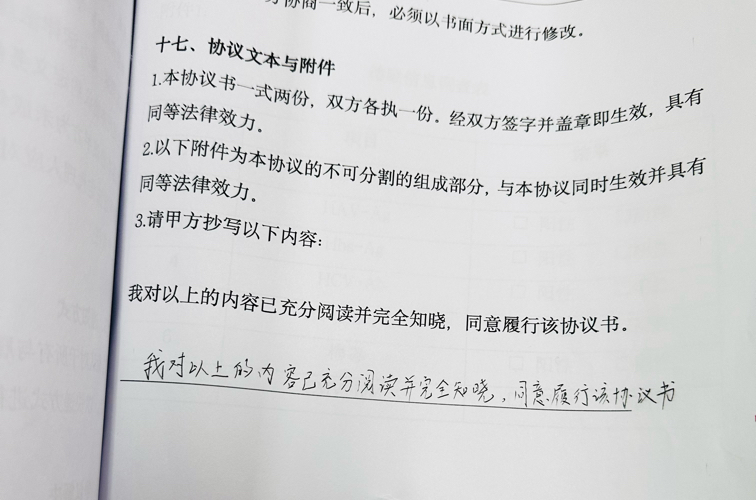 协商一致后，必须以书面方式进行修改。
十七、协议文本与附件
1.本协议书一式两份，双方各执一份。经双方签字并盖章即生效，具有
同等法律效力。
2.以下附件为本协议的不可分割的组成部分，与本协议同时生效并具有
同等法律效力。
3.请甲方抄写以下内容：
我对以上的内容已充分阅读并完全知晓，同意履行该协议书。
我对以上的内容已充分阅读并完全知晓，同意履行该协议书